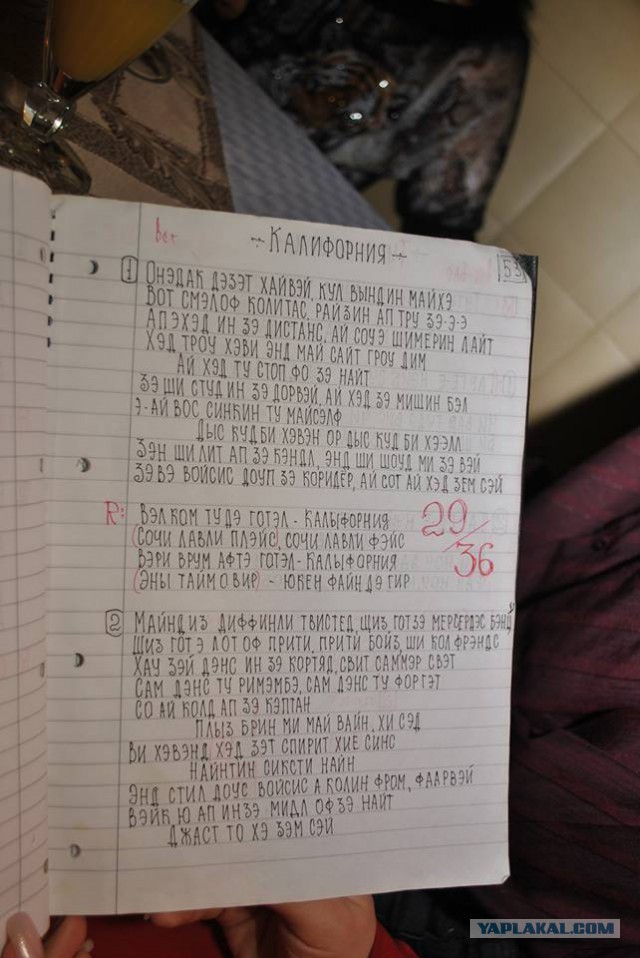 Вет
- КАЛИФОРНИЯ -
53
1 ОНЭДАК ДЭЗЭТ ХАЙВЭЙ, КУЛ ВЫНДИН МАЙХЭ
ВОТ СМЭЛОФ КОЛИТАС, РАЙЗИН АП ТРУ ЗЭ-Э-Э
АПЭХЭД ИН ЗЭ ДИСТАНС, АЙ СОУЭ ШИМЕРИН ЛАЙТ
ХЭД ТРОУ ХЭВИ ЭНД МАЙ САЙТ ГРОУ ДИМ
АЙ ХЭД ТУ СТОП ФО ЗЭ НАЙТ
ЗЭ ШИ СТУД ИН ЗЭ ДОРВЭЙ, АЙ ХЭД ЗЭ МИШИН БЭЛ
Э-АЙ ВОС СИНКИН ТУ МАЙСЭЛФ
ДЫС КУД БИ ХЭВЭН ОР ДЫС КУД БИ ХЭЭЛЛ
ЗЭН ШИ ЛИТ АП ЗЭ КЭНДЛ, ЭНД ШИ ШОУД МИ ЗЭ ВЭЙ
ЗЭ ВЭ ВОЙСИС ДОУП ЗЭ КОРИДЁР, АЙ СОТ АЙ ХЭД ЗЕМ СЭЙ
R: ВЭЛ КОМ ТУ ДЭ ГОТЭЛ - КАЛЫФОРНИЯ
(СОЧИ ЛАВЛИ ПЛЭЙС), СОЧИ ЛАВЛИ ФЭЙС
ВЭРИ ВРУМ АФТЭ ГОТЭЛ - КАЛЫФОРНИЯ
(ЭНЫ ТАЙМ О ВИР) - ЮКЕН ФАЙН ДЭ ГИР
29/36
2 МАЙНД ИЗ ДИФФИНЛИ ТВИСТЕД, ЩИЗ, ГОТ ЗЭ МЕРСЕРДЭС БЭНД
ЩИЗ ГОТ Э ЛОТ ОФ ПРИТИ, ПРИТИ БОЙЗ, ШИ КОЛ ФРЭНДС
ХАУ ЗЭЙ ДЭНС ИН ЗЭ КОРТЯД, СВИТ САММЭР СВЭТ
САМ ДЭНС ТУ РИМЭМБЭ, САМ ДЭНС ТУ ФОРГЭТ
СО АЙ КОЛД АП ЗЭ КЭПТАН
ПЛЫЗ БРИН МИ МАЙ ВАЙН, ХИ СЭД
ВИ ХЭВЭНД ХЭД ЗЭТ СПИРИТ ХИЕ СИНС
НАЙНТИН СИКСТИ НАЙН
ЭНД СТИЛ ДОУС ВОЙСИС А КОЛИН ФРОМ, ФААРВЭЙ
ВЭЙК Ю АП ИН ЗЭ МИДЛ ОФ ЗЭ НАЙТ
ДЖАСТ ТО ХЭ ЗЭМ СЭЙ
YAPLAKAL.COM